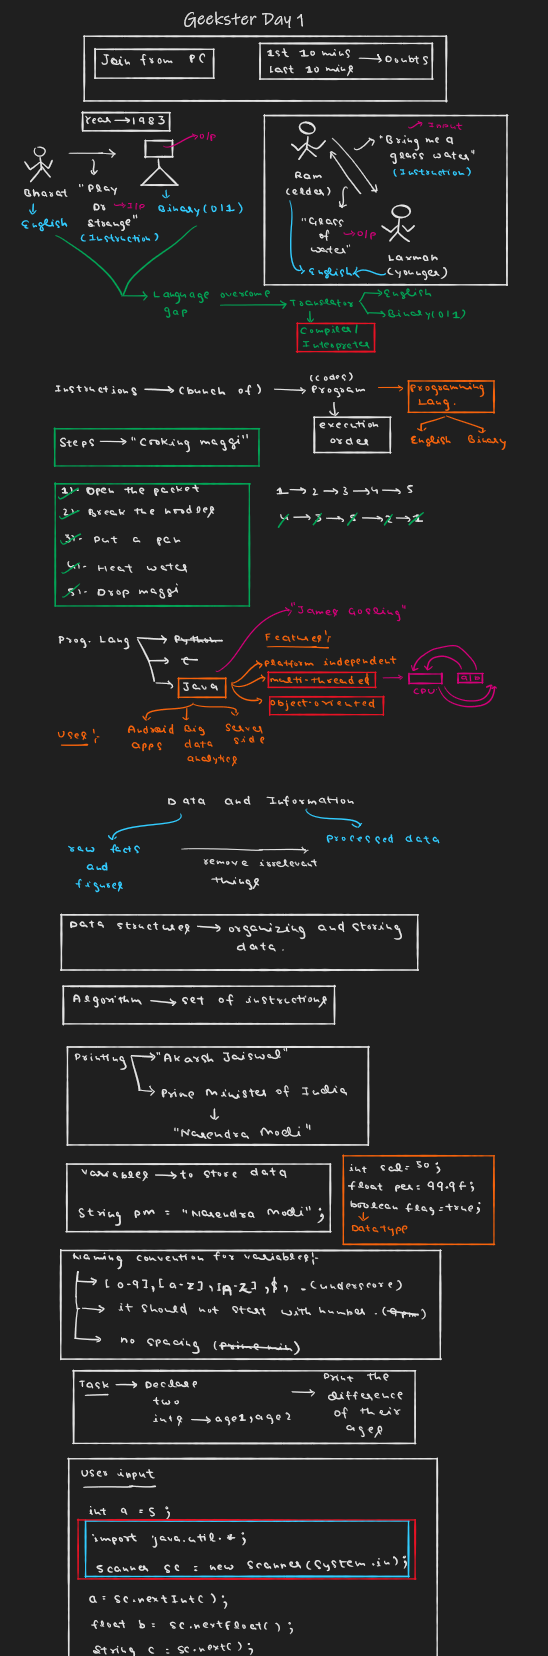 Geekster Day 1
Join from PC
1st 10 mins → Doubts
last 10 mins
Year → 1983
O/P
Bharat
"Play
Do → I/P
Strange"
(Instruction)
English
Binary (0/1)
Input
"Bring me a
glass water"
(Instruction)
Ram
(elder)
"Glass
of → O/P
water"
Laxman
(younger)
English
Language overcome
gap
Translator
English
Binary (0/1)
Compiler/
Interpreter
Instructions → (bunch of) → Program
(codes)
Programming
Lang.
execution
order
English Binary
Steps → "Cooking maggi"
1). Open the packet
2). Break the noodles
3). Put a pan
4). Heat water
5). Drop maggi
1 → 2 → 3 → 4 → 5
4 → 3 → 5 → 2 → 1
"James Gosling"
Prog. Lang
Python
C
Java
Features:
platform independent
multi-threaded
object-oriented
CPU
Uses:
Android
apps
Big
data
analytics
Server
side
Data and Information
raw facts
and
figures
remove irrelevant
things
Processed data
Data structures → organizing and storing
data.
Algorithm → set of instructions
Printing → "Akarsh Jaiswal"
→ Prime Minister of India
↓
"Narendra Modi"
variables → to store data
String pm = "Narendra Modi";
int sal = 50;
float per = 99.9f;
boolean flag = true;
Datatype
Naming convention for variables:-
→ [0-9], [a-z], [A-Z], $, _ (underscore)
→ it should not start with number. (9pm)
→ no spacing (prime min)
Task → Declare
two
ints → age1, age2
→ Print the
difference
of their
ages
User input
int a = 5;
import java.util.*;
Scanner sc = new Scanner(System.in);
a = sc.nextInt();
float b = sc.nextFloat();
String c = sc.next();